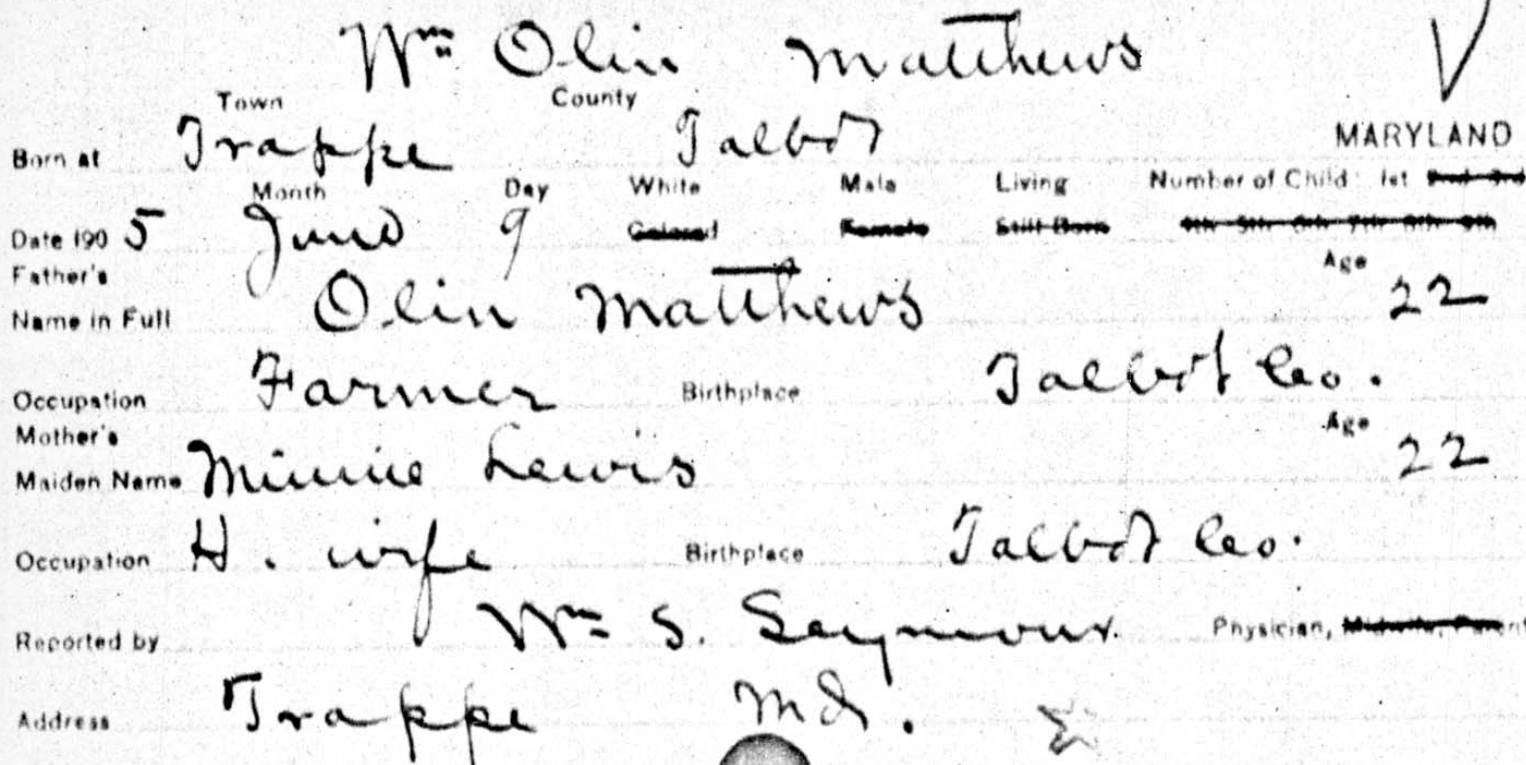 Wm Olin Matthews
Town County
Born at Trappe Talbot MARYLAND
Month Day White Male Living Number of Child: 1st 2nd 3rd
Date 1905 June 9 Colored Female Still Born 4th 5th 6th 7th 8th 9th
Father's Age
Name in Full Olin Matthews 22
Occupation Farmer Birthplace Talbot Co.
Mother's Age
Maiden Name Minnie Lewis 22
Occupation H. wife Birthplace Talbot Co.
Reported by Wm S. Seymour. Physician, Midwife, Parent
Address Trappe Md.